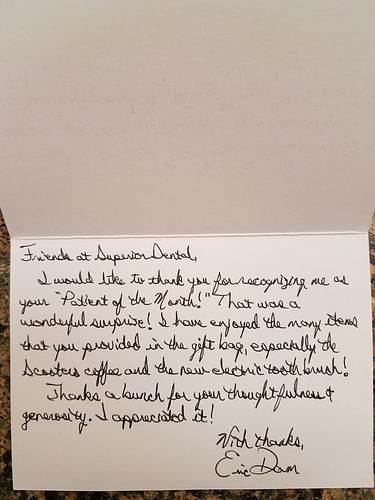 Friends at Superior Dental,
I would like to thank you for recognizing me as
your "Patient of the Month!" That was a
wonderful surprise! I have enjoyed the many items
that you provided in the gift bag, especially the
Scooters coffee and the new electric toothbrush!
Thanks a bunch for your thoughtfulness &
generosity. I appreciated it!
With thanks,
Eric Dam